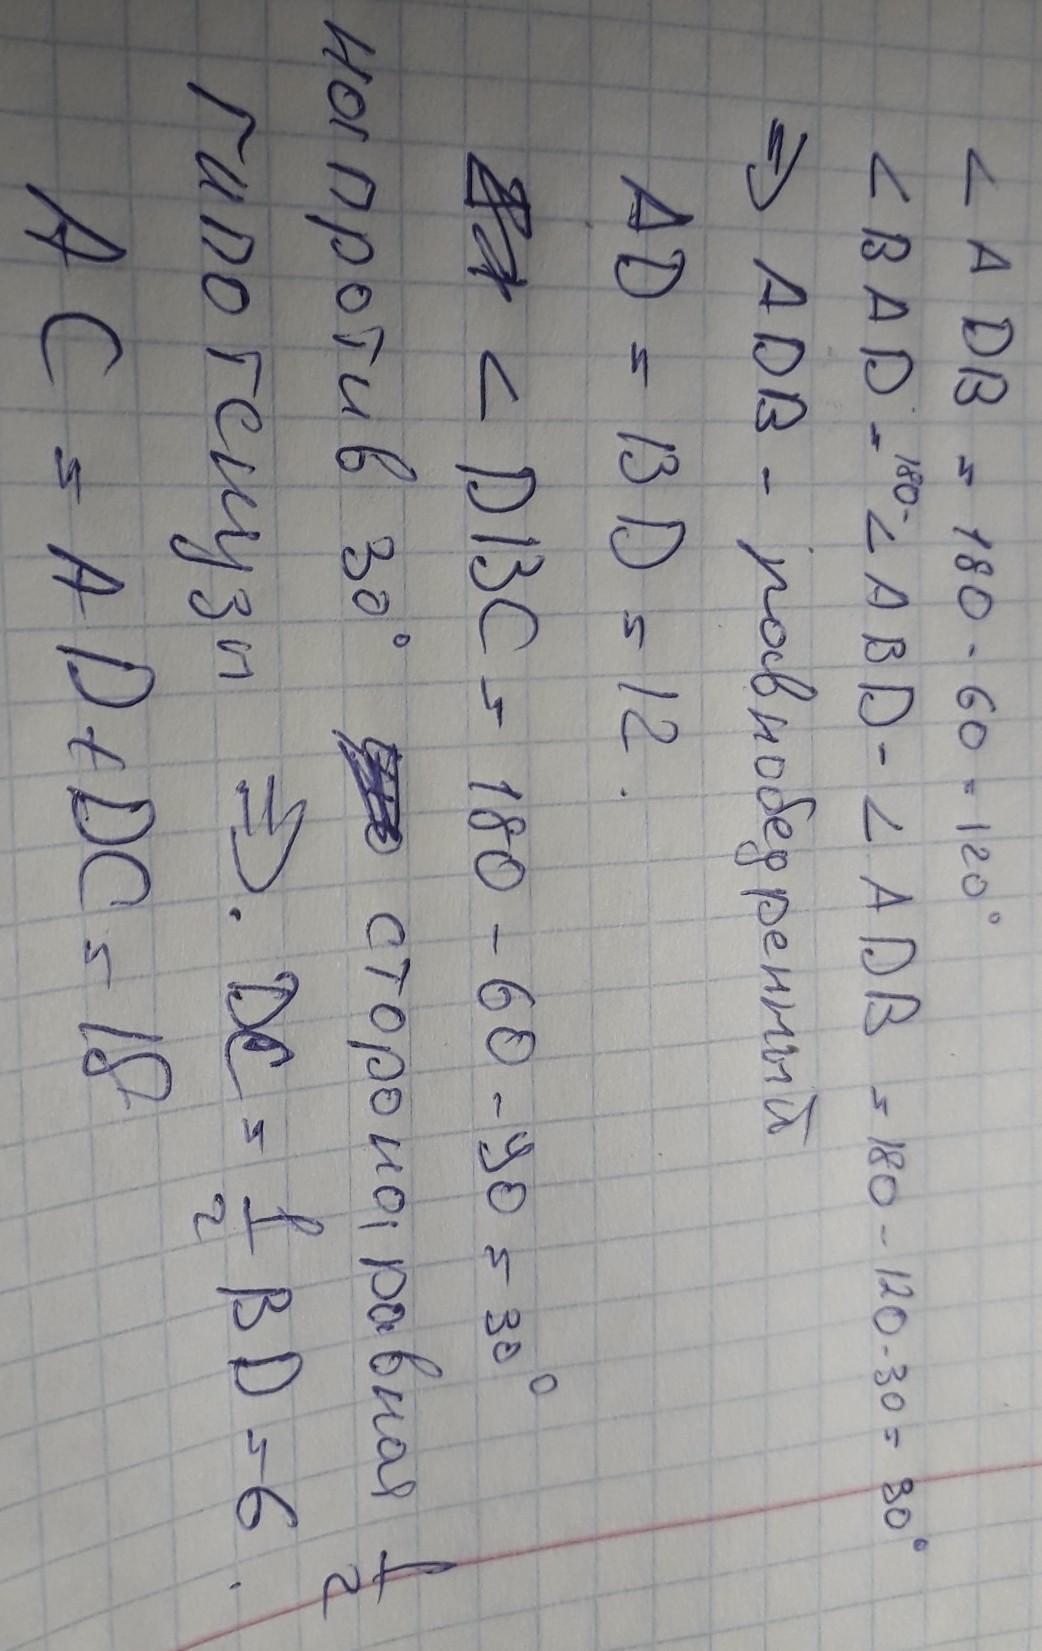 ∠ADB = 180 - 60 = 120°
∠BAD = 180 - ∠ABD - ∠ADB = 180 - 120 - 30 = 30°
⇒ ADB - равнобедренный
AD = BD = 12.
∠DBC = 180 - 60 - 90 = 30°
напротив 30° сторона, равная 1/2
гипотенузы ⇒. DC = 1/2 BD = 6.
AC = AD + DC = 18